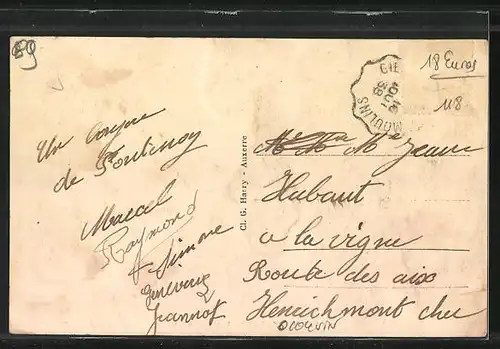 89
18 Euros
118
MOULINS
Un
de Fontenoy
Marcel
Raymond
Simone
Genevieve
Jeannot
Cl. G. Harry - Auxerre
Mle Jeanne
Hubaut
a la vigne
Route des aix
Henrichmont cher